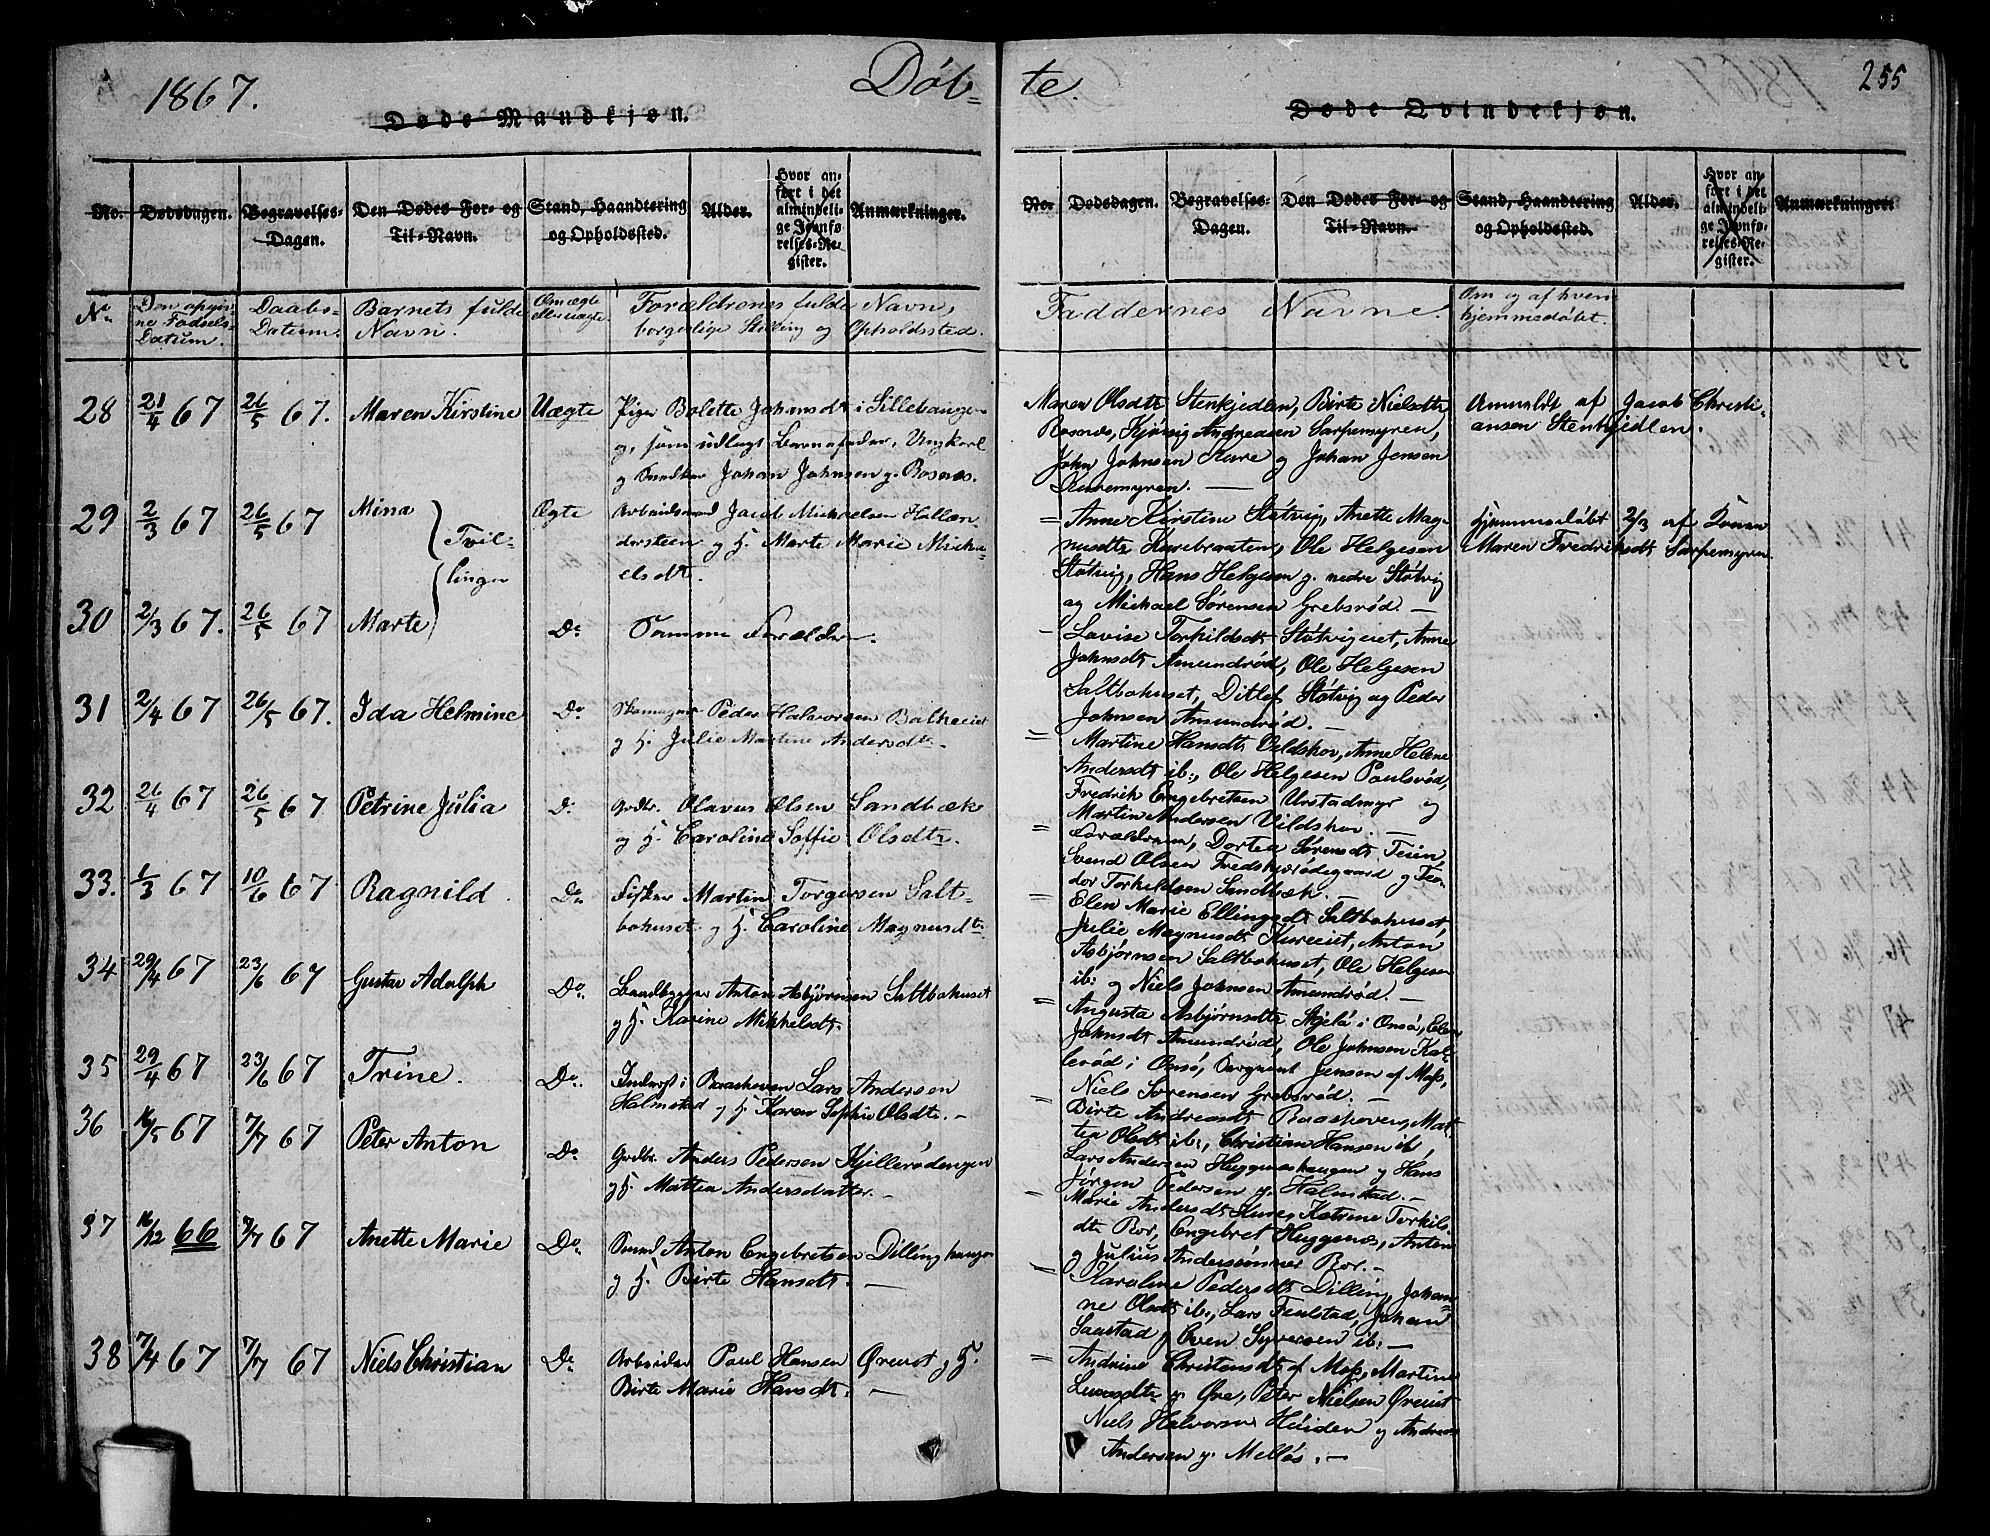 1867.
Døb-
te.
255
Døde Mandkjøn.
Døde Qvindekjøn.
No.
Dødsdagen.
Begravelses-
Dagen.
Den Dødes For- og
Til-Navn.
Stand, Haandtering
og Opholdssted.
Alder.
Hvor an-
ført i det
almindeli-
ge Jevnfø-
relses-Re-
gister.
Anmærkninger.
No.
Dødsdagen.
Begravelses-
Dagen.
Den Dødes For- og
Til-Navn.
Stand, Haandtering
og Opholdssted.
Alder.
Hvor an-
ført i det
almindeli-
ge Jevnfø-
relses-Re-
gister.
Anmærkninger.
No
Den opgiv-
ne Fødsels-
Datum.
Daabs-
Datum.
Barnets fulde
Navn.
Om ægte
eller uægte.
Forældrenes fulde Navn,
borgerlige Stilling og Opholdssted.
Faddernes Navne.
Om og af hvem
hjemmedøbt.
28 21/4 67 26/5 67. Maren Kirstine Uægte Pige Bolette Johansdt i Sillebaugen
og, som udlagt Barnefader, Ungkarl
og Johan Johnsen g. Rosnæs.
Maren Olsdtr Stenkjedlen, Birte Nielsdtr
Rosnæs, Andreasen Sarpemyren,
John Johnsen Kure og Johan Jensen
Kuremyren.
Anmeldt af Jacob Christi-
ansen Stenkjedlen.
29 2/3 67 26/5 67 Mina Tvil- Ægte Arbeidsmand Jacob Michaelsen Hallen
dorsteen og H. Marte Marie Micha-
elsdt.
Anne Kirstine Støtvig, Anette Mag-
nusdtr Kurebraaten, Ole Helgesen
Støtvig, Hans Helgesen g. nedre Støtvig
og Michael Sørensen Grebsrød. —
Hjemmedøbt 2/3 af Konen
Maren Fredriksdt Sarpemyren
30 2/3 67. 26/5 67 Marte linger Do Samme Forældre.
Lovise Torkildsdt Støtvigeiet, Anne
Johnsdt Amundrød, Ole Helgesen
Saltbohuset, Ditlef Støtvig og Peder
Johnsen Amundrød. —
31 2/4 67 26/5 67. Ida Helmine Do Skomager Peder Halvorsen Bolheeiet
og H. Julie Martine Andersdtr.
Martine Hansdt Vildskov, Anne Helene
Andersdt ib:, Ole Helgesen Paulsrød,
Fredrik Engebretsen Urstadmyr og
Martin Andersen Vildskov. —
32 26/4 67 26/5 67 Petrine Julia Do Grdbr. Olavus Olsen Sandbæk
og H. Caroline Soffie Olsdtr.
Forældrene, Dortea Sørensdt Teien,
Svend Olsen Fredskjærødegaard og Teo-
dor Torkildsen Sandbæk. —
33. 1/3 67 10/6 67 Ragnild Do Fisker Martin Torgersen Salt-
bohuset og H. Caroline Magnusdtr
Elen Marie Ellingsdt Saltbohuset,
Julie Magnusdt Kureeiet, Anton
Asbjørnsen Saltbohuset, Ole Helgesen
ib: og Niels Johnsen Amundrød. —
34 29/4 67 23/6 67 Gustav Adolph Do Baadbygger Anton Asbjørnsen Saltbohuset
og H. Karine Mikkelsdt.
Augusta Asbjørnsdtr Skjelø i Onsø, Elen
Johnsdt Amundrød, Ole Johnsen Kol-
lerød i Onsø, Sergeant Jensen af Moss,
Niels Sørensen Grebsrød. —
35 29/4 67 23/6 67 Trine. Do Inderst i Raashoven Lars Andersen
Halmstad og H. Karen Sophie Olsdtr. —
Birte Andreasdt Raashoven, Mat-
tea Olsdt ib:, Christian Hansen ib,
Lars Andersen Huggenæshaugen og Hans
Jørgen Pedersen g. Halmstad. —
36 16/5 67 7/7 67 Peter Anton Do Grdbr. Anders Pedersen Kjillerødengen
og H. Mattea Andersdatter. —
Marie Andersdt Kure, Katrine Torkils-
dtr Ror, Engebret Huggenæs, Anton
og Julius Anderssønner Ror. —
37 16/12 66 7/7 67 Anette Marie Do Anton Engebretsen Dillinghaugen
og H. Birte Hansdt. —
Karoline Pedersdt Dilling, Johan-
ne Olsdt ib:, Lars Feulstad, Johan
Saastad og Even Syversen ib: —
38 7/4 67 7/7 67 Niels Christian Do Arbeider Poul Hansen Øreiet og H.
Birte Marie Hansdt. —
Andrine Christensdt af Moss, Martine
g. Øre, Peter Nielsen Øreiet
Niels Halvorsen Høiden og Andreas
Andersen g. Melløs. —